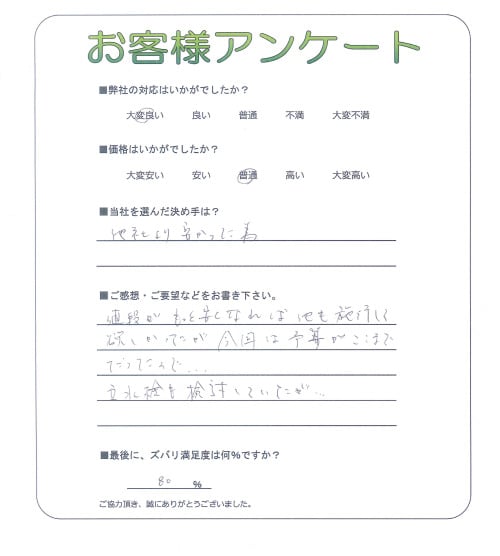 お客様アンケート
■弊社の対応はいかがでしたか？
大変良い 良い 普通 不満 大変不満
■価格はいかがでしたか？
大変安い 安い 普通 高い 大変高い
■当社を選んだ決め手は？
他社より安かった為
■ご感想・ご要望などをお書き下さい。
値段がもっと安くなれば他も施行して
欲しかったが今回は予算がここまで
だったので...
立水栓も検討していたが...
■最後に、ズバリ満足度は何%ですか？
80 %
ご協力頂き、誠にありがとうございました。